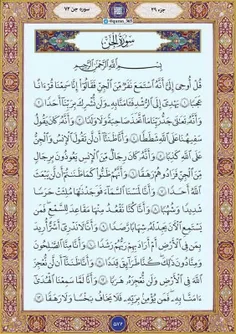 جزء ۲۹
سوره جن ۷۲
سُورَةُ الجِنِّ
بِسْمِ ٱللَّهِ ٱلرَّحْمَٰنِ ٱلرَّحِيمِ
قُلْ أُوحِيَ إِلَيَّ أَنَّهُ ٱسْتَمَعَ نَفَرٌ مِّنَ ٱلْجِنِّ فَقَالُوٓاْ إِنَّا سَمِعْنَا قُرْءَانًا
عَجَبًا ۝١ يَهْدِيٓ إِلَى ٱلرُّشْدِ فَـَٔامَنَّا بِهِۦ وَلَن نُّشْرِكَ بِرَبِّنَآ أَحَدًا ۝٢
وَأَنَّهُۥ تَعَٰلَىٰ جَدُّ رَبِّنَا مَا ٱتَّخَذَ صَٰحِبَةً وَلَا وَلَدًا ۝٣ وَأَنَّهُۥ كَانَ يَقُولُ
سَفِيهُنَا عَلَى ٱللَّهِ شَطَطًا ۝٤ وَأَنَّا ظَنَنَّآ أَن لَّن تَقُولَ ٱلْإِنسُ وَٱلْجِنُّ
عَلَى ٱللَّهِ كَذِبًا ۝٥ وَأَنَّهُۥ كَانَ رِجَالٌ مِّنَ ٱلْإِنسِ يَعُوذُونَ بِرِجَالٍ
مِّنَ ٱلْجِنِّ فَزَادُوهُمْ رَهَقًا ۝٦ وَأَنَّهُمْ ظَنُّواْ كَمَا ظَنَنتُمْ أَن لَّن يَبْعَثَ
ٱللَّهُ أَحَدًا ۝٧ وَأَنَّا لَمَسْنَا ٱلسَّمَآءَ فَوَجَدْنَٰهَا مُلِئَتْ حَرَسًا
شَدِيدًا وَشُهُبًا ۝٨ وَأَنَّا كُنَّا نَقْعُدُ مِنْهَا مَقَٰعِدَ لِلسَّمْعِ فَمَن
يَسْتَمِعِ ٱلْآنَ يَجِدْ لَهُۥ شِهَابًا رَّصَدًا ۝٩ وَأَنَّا لَا نَدْرِيٓ أَشَرٌّ أُرِيدَ
بِمَن فِي ٱلْأَرْضِ أَمْ أَرَادَ بِهِمْ رَبُّهُمْ رَشَدًا ۝١٠ وَأَنَّا مِنَّا ٱلصَّٰلِحُونَ
وَمِنَّا دُونَ ذَٰلِكَ كُنَّا طَرَآئِقَ قِدَدًا ۝١١ وَأَنَّا ظَنَنَّآ أَن لَّن نُّعْجِزَ
ٱللَّهَ فِي ٱلْأَرْضِ وَلَن نُّعْجِزَهُۥ هَرَبًا ۝١٢ وَأَنَّا لَمَّا سَمِعْنَا ٱلْهُدَىٰٓ
ءَامَنَّا بِهِۦ فَمَن يُؤْمِنۢ بِرَبِّهِۦ فَلَا يَخَافُ بَخْسًا وَلَا رَهَقًا ۝١٣
۵۷۲